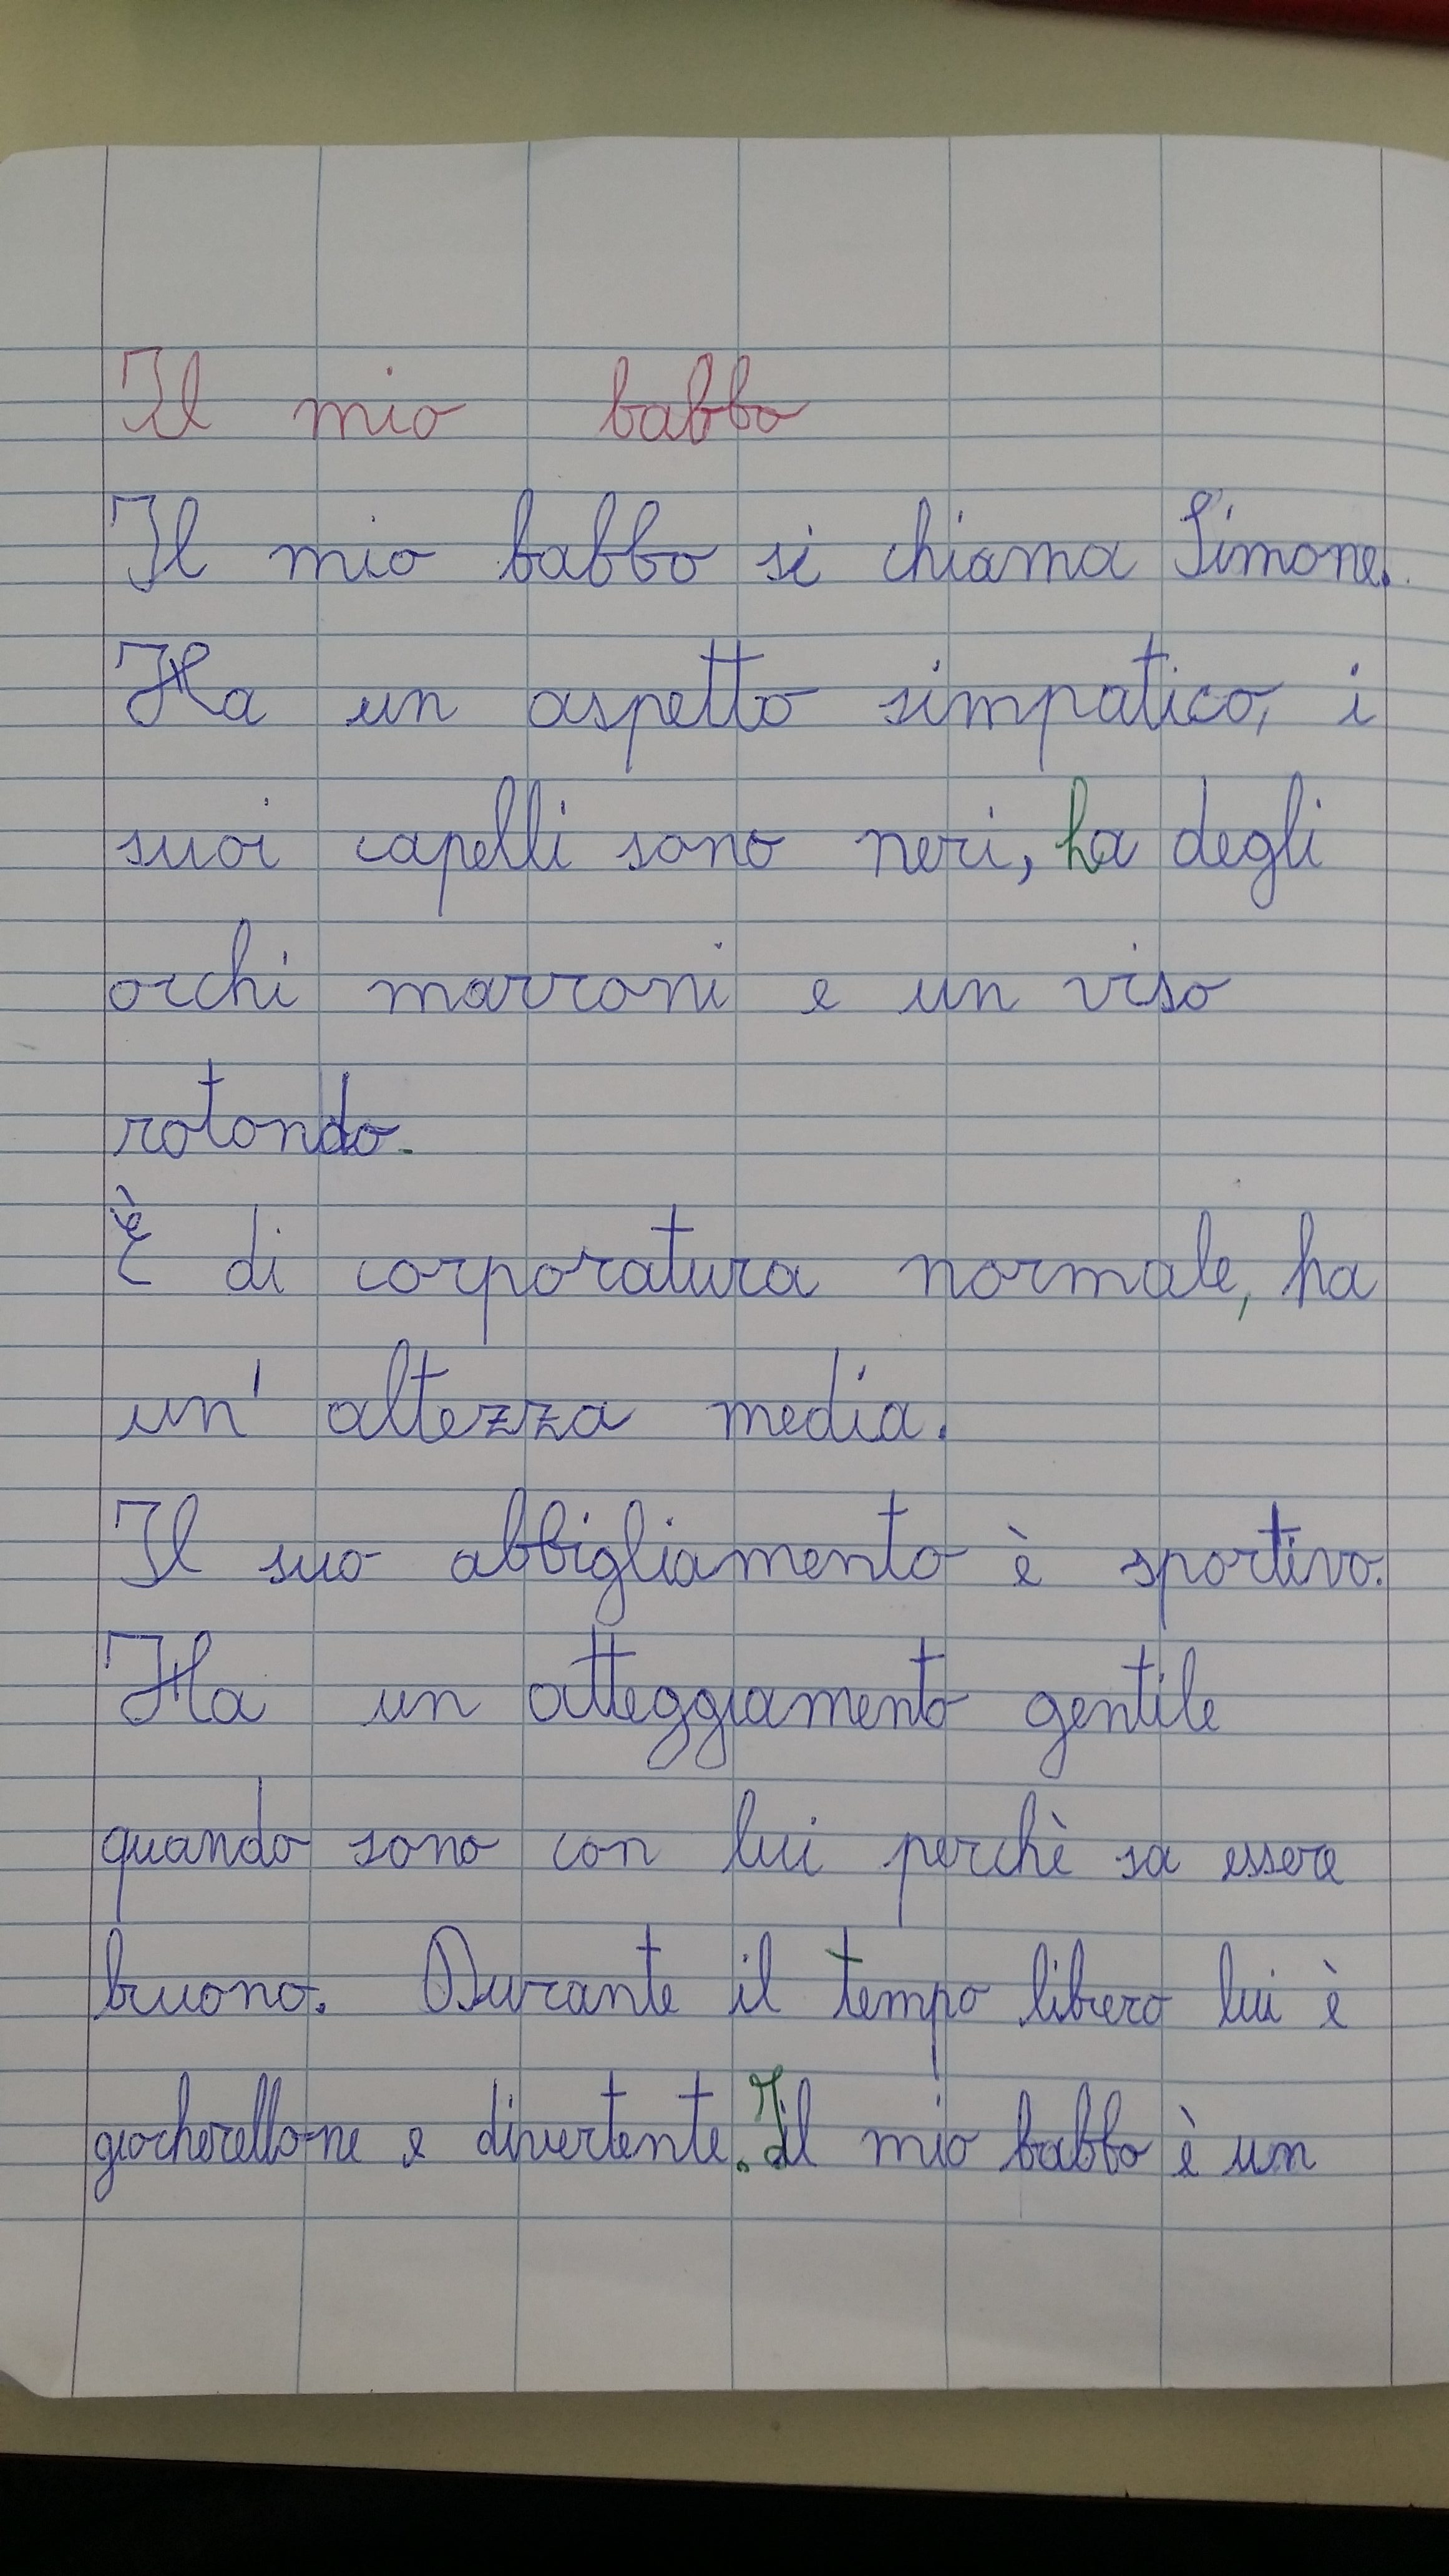 Il mio babbo
Il mio babbo si chiama Simone.
Ha un aspetto simpatico, i
suoi capelli sono neri, ha degli
occhi marroni e un viso
rotondo.
È di corporatura normale, ha
un' altezza media.
Il suo abbigliamento è sportivo.
Ha un atteggiamento gentile
quando sono con lui perchè sa essere
buono. Durante il tempo libero lui è
giocherellone e divertente. Il mio babbo è un